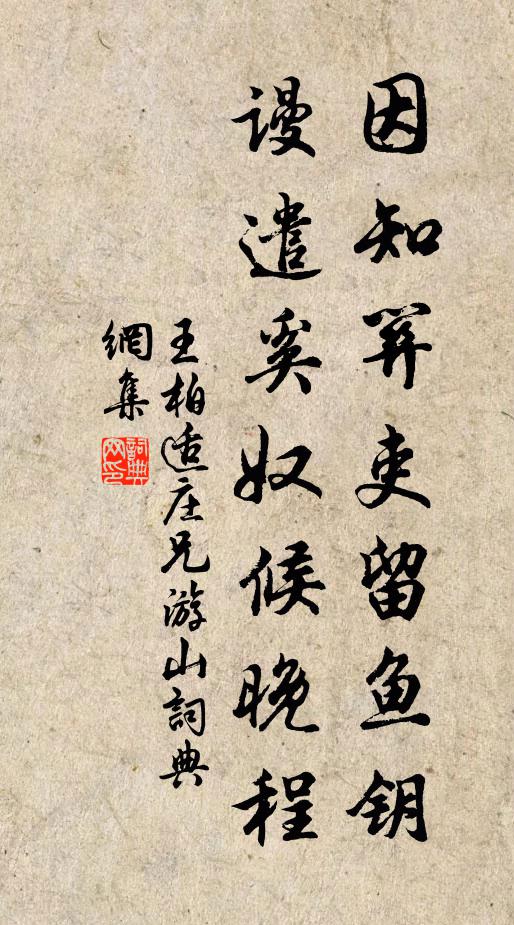 因知筭吏留鱼钥
谩遣奚奴候晚程
王柏适庄兄游山詞典
網集
詞典网印